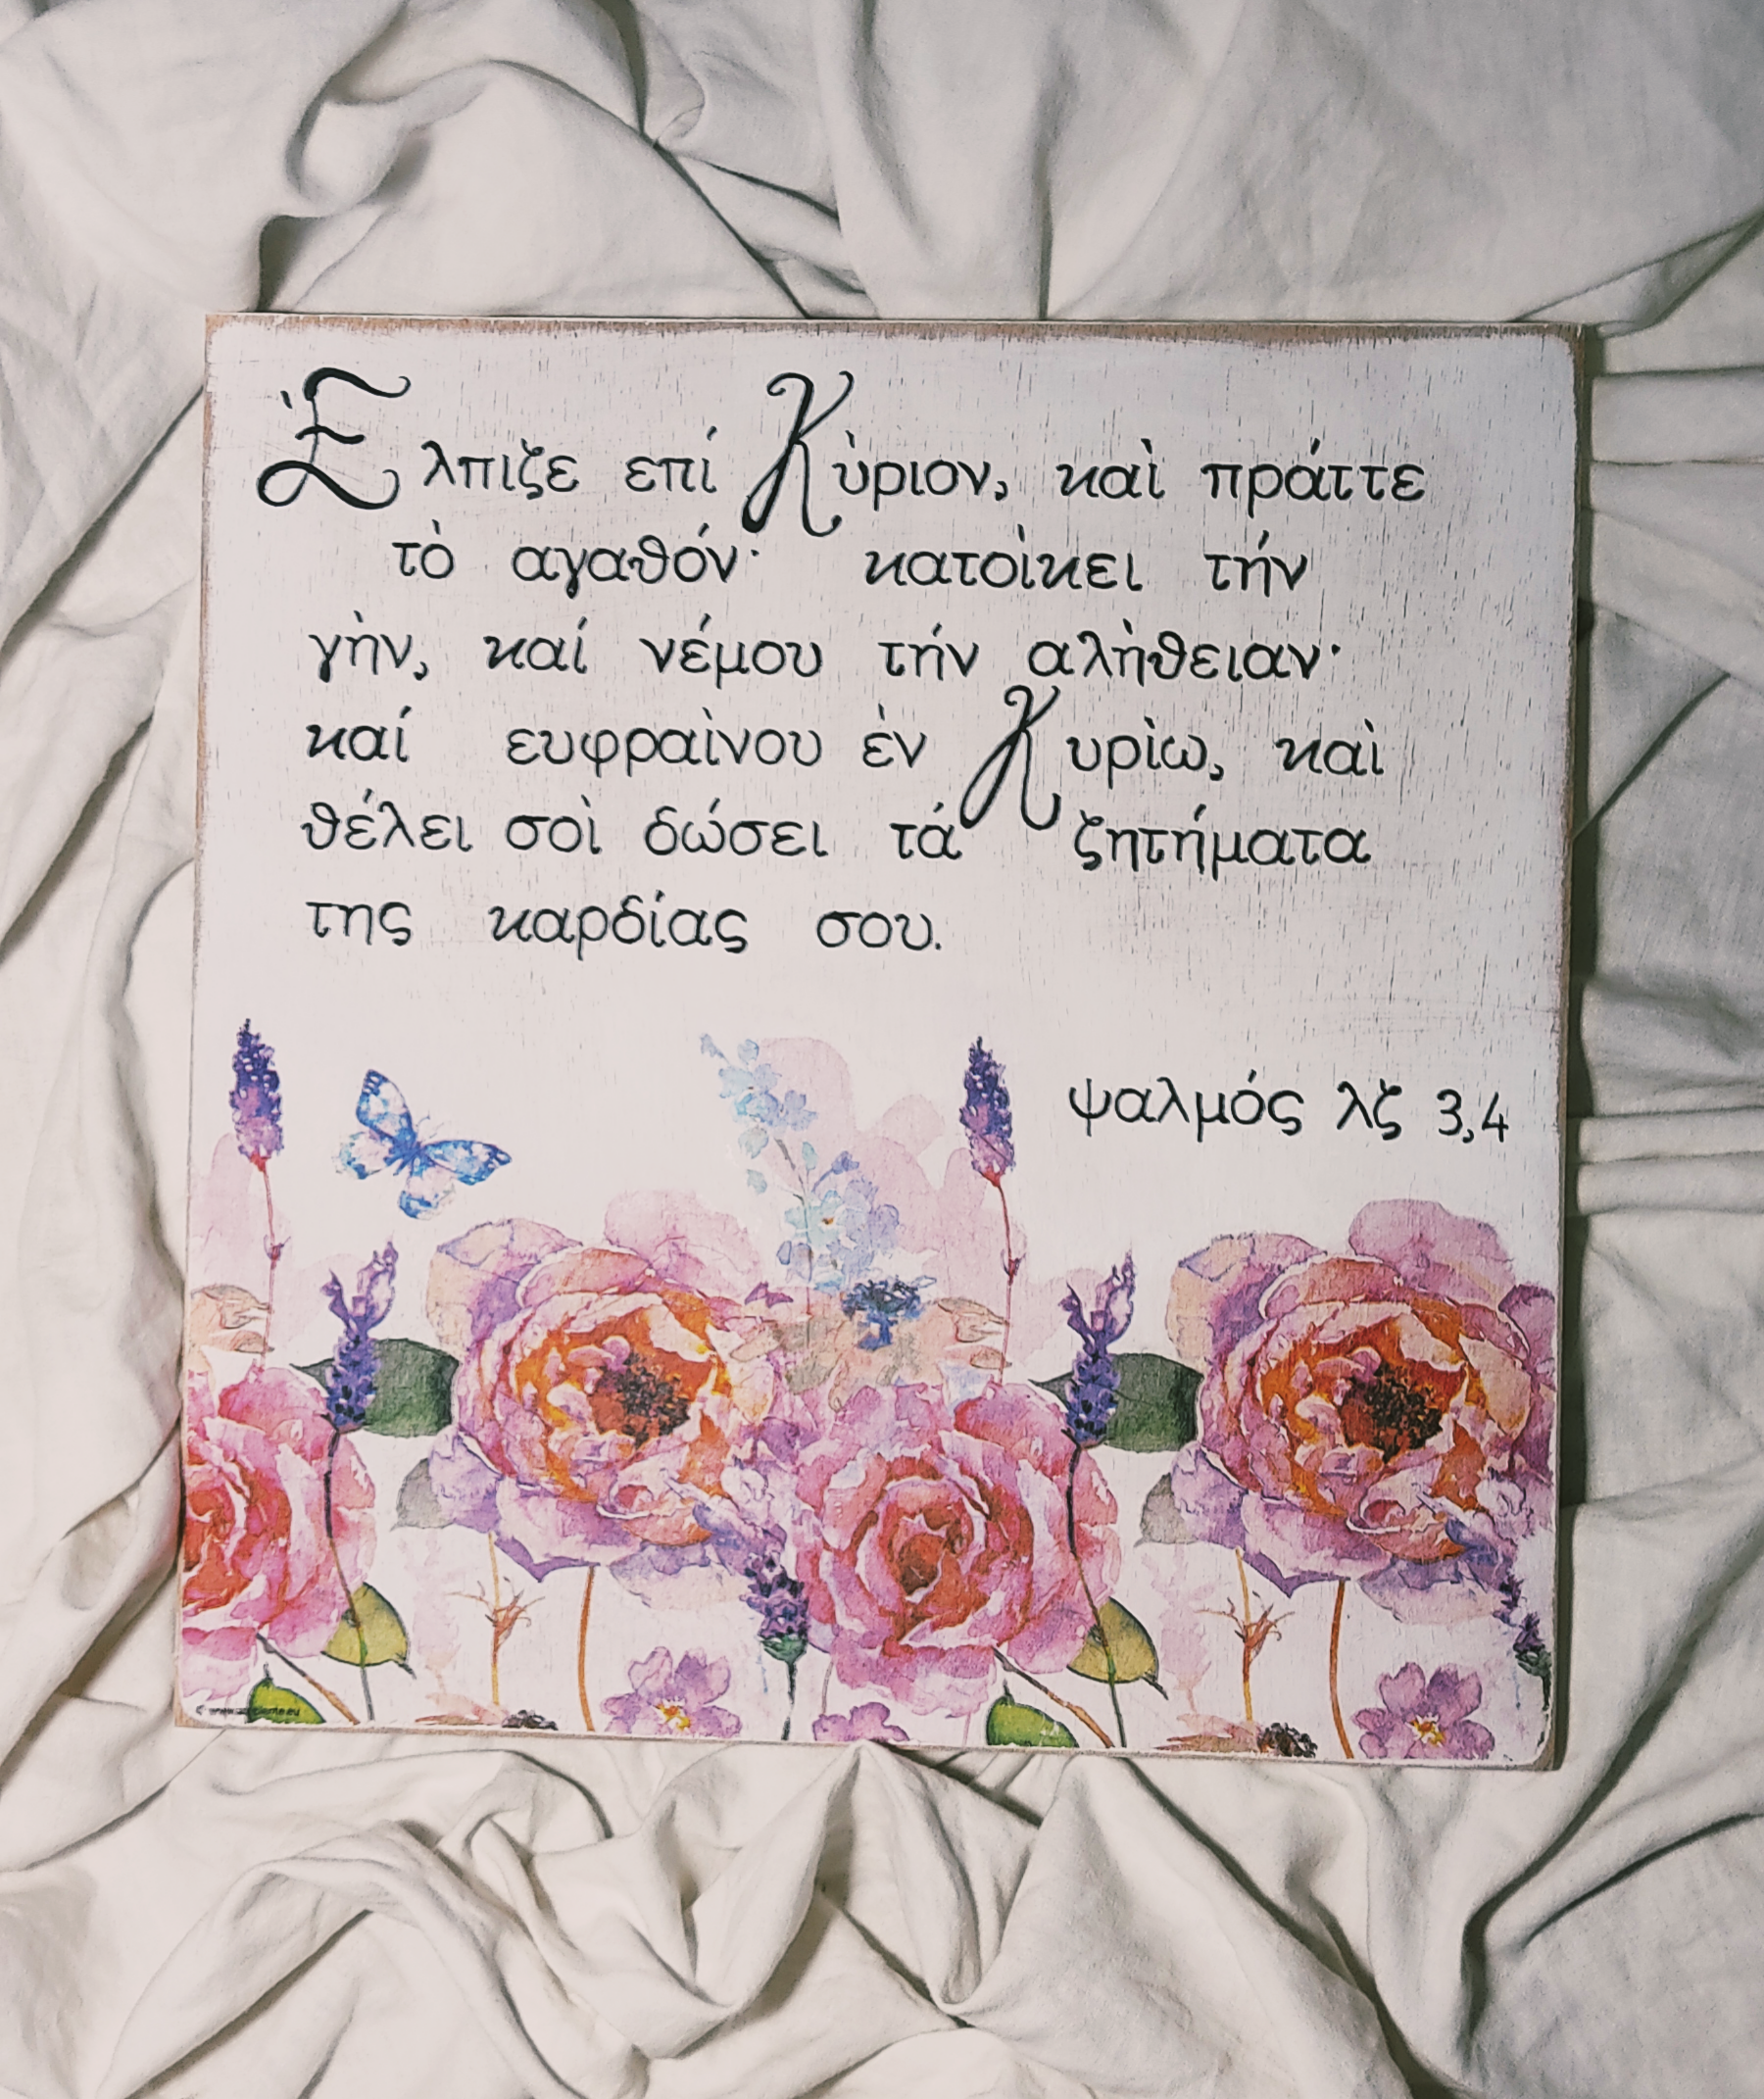 Ἔλπιζε επί Κὺριον, καὶ πράττε
τὸ αγαθόν· κατοὶκει τήν
γὴν, καί νέμου τήν αλὴθειαν·
καί ευφραὶνου ἐν Κυρὶω, καὶ
θέλει σοὶ δώσει τά ζητήματα
της καρδίας σου.
ψαλμός λζ 3,4